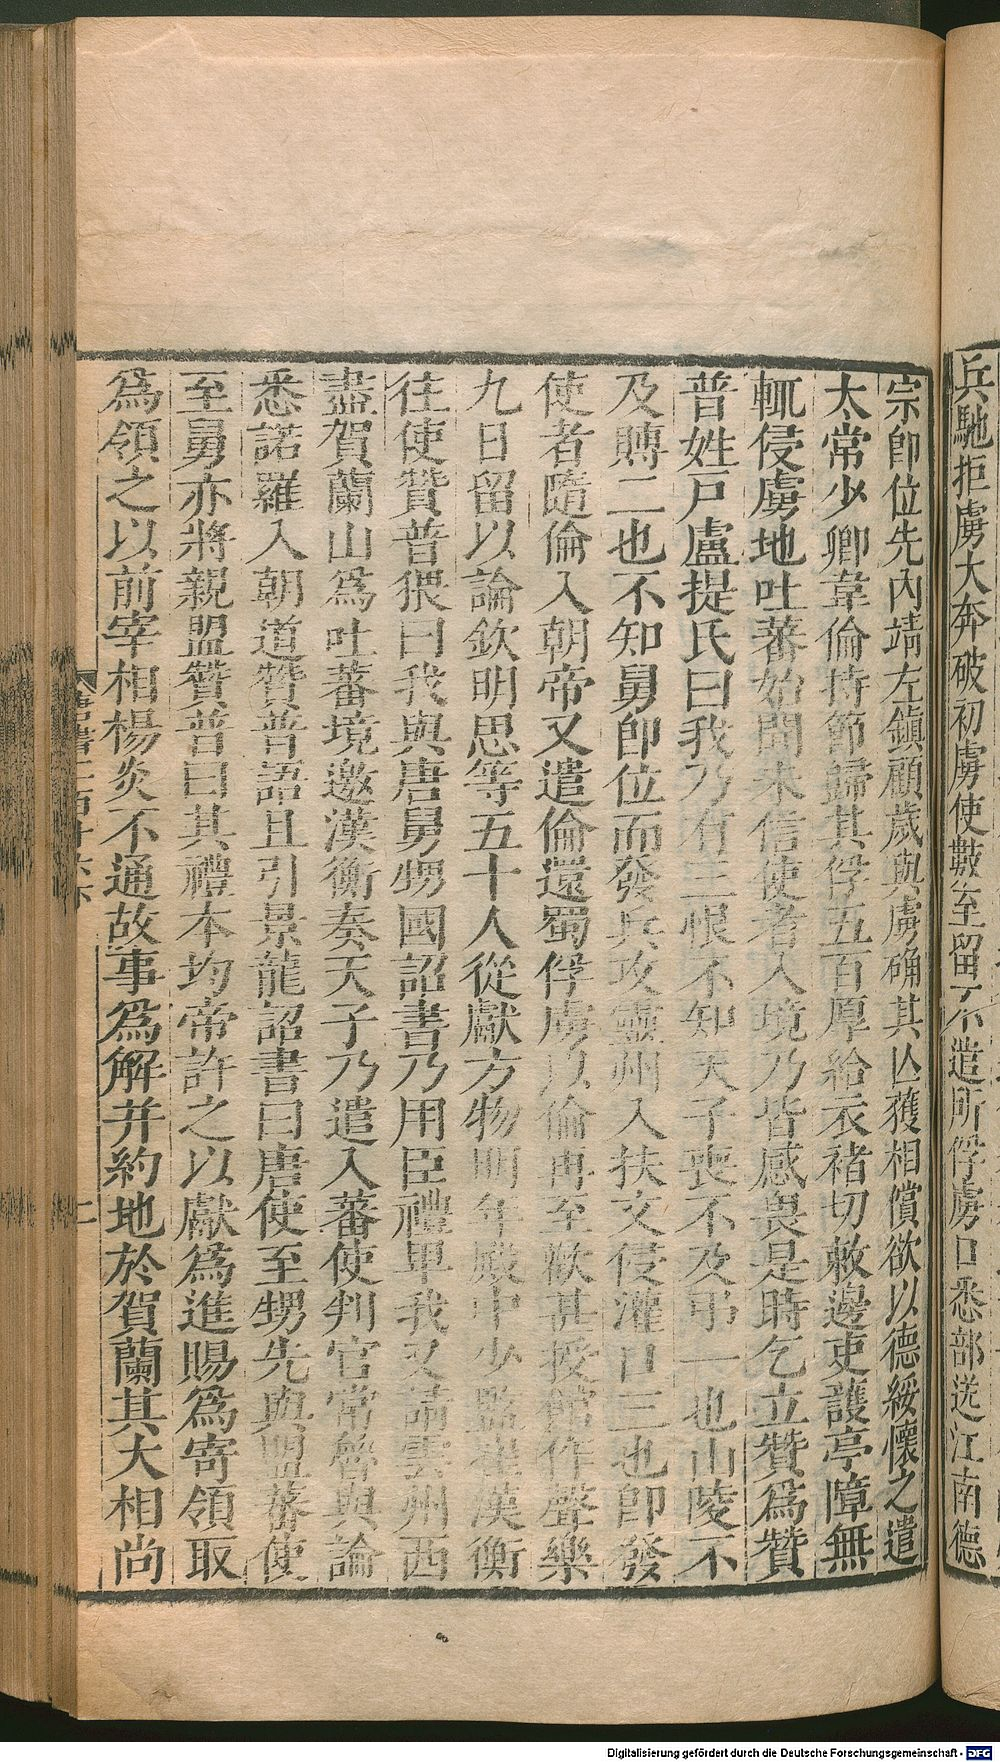 兵馳拒虜大奔破初虜使數至留不遣所俘虜口悉部送江南德
宗即位先內靖左鎮顧歲與虜确其亾獲相償欲以德綏懷之遣
太常少卿韋倫持節歸其俘五百厚給衣褚切敕邊吏護亭障無
輒侵虜地吐蕃始聞未信使者入境乃皆感畏是時乞立贊爲贊
普姓戸盧提氏曰我乃有三恨不知天子喪不及弔一也山陵不
及賻二也不知舅即位而發兵攻靈州入扶文侵灌口三也即發
使者隨倫入朝帝又遣倫還蜀俘虜以倫再至歡甚授館作聲樂
九日留以論欽明思等五十人從獻方物明年殿中少監崔漢衡
往使贊普猥曰我與唐舅甥國詔書乃用臣禮卑我又請雲州西
盡賀蘭山爲吐蕃境邀漢衡奏天子乃遣入蕃使判官常魯與論
悉諾羅入朝道贊普語且引景龍詔書曰唐使至甥先與盟蕃使
至舅亦將親盟贊普曰其禮本均帝許之以獻爲進賜爲寄領取
爲領之以前宰相楊炎不通故事爲解并約地於賀蘭其大相尚
唐書二百十六下
二
Digitalisierung gefördert durch die Deutsche Forschungsgemeinschaft - DFG